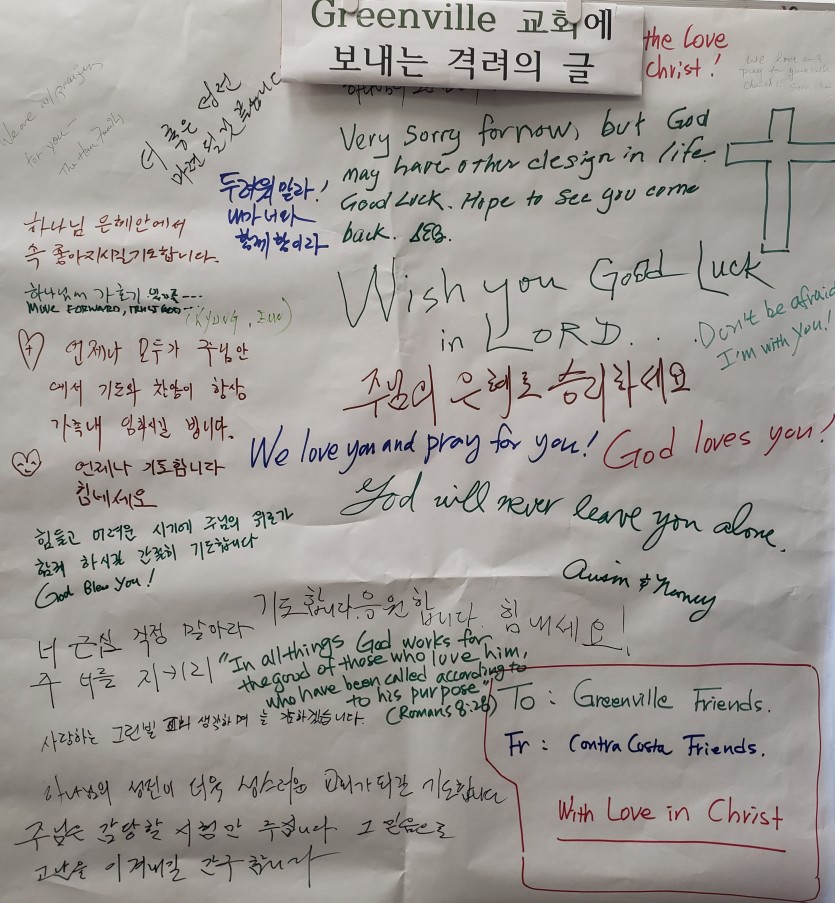 Greenville 교회에
보내는 격려의 글
the Love
Christ!
We love and
pray for you with
We are all praying
for you—
The Han Family
더 좋은 성전
마련 될 것 믿습니다
Very Sorry for now, but God
may have other design in life.
Good Luck. Hope to see you come
back.
두려워 말라!
내가 너와
함께 함이라
하나님 은혜안에서
속 좋아지시길 기도합니다.
하나님의 가호가 있기를---
MOVE FORWARD, TRUST GOD---
(Kyung, Eun)
Wish you Good Luck
in LORD...
Don't be afraid
I'm with you!
언제나 모두가 주님안
에서 기도와 찬양이 항상
가족내 임하시길 빕니다.
주님의 은혜로 승리하세요
We love you and pray for you!
God loves you!
언제나 기도합니다
힘내세요
God will never leave you alone.
Austin & Nancy
힘들고 어려운 시기에 주님의 위로가
함께 하시길 간절히 기도합니다
God Bless You!
기도합니다. 응원합니다. 힘내세요!
너 근심 걱정 말아라
주 너를 지키리
"In all things God works for
the good of those who love him,
who have been called according to
to his purpose"
(Romans 8:28)
사랑하는 그린빌 교회 생각하며 늘 기도하겠습니다.
To: Greenville Friends.
Fr: Contra Costa Friends.
With Love in Christ
하나님의 성전이 더욱 성스러운 교회가 되길 기도합니다
주님은 감당할 시험만 주십니다 그 믿음으로
고난을 이겨내길 간구합니다